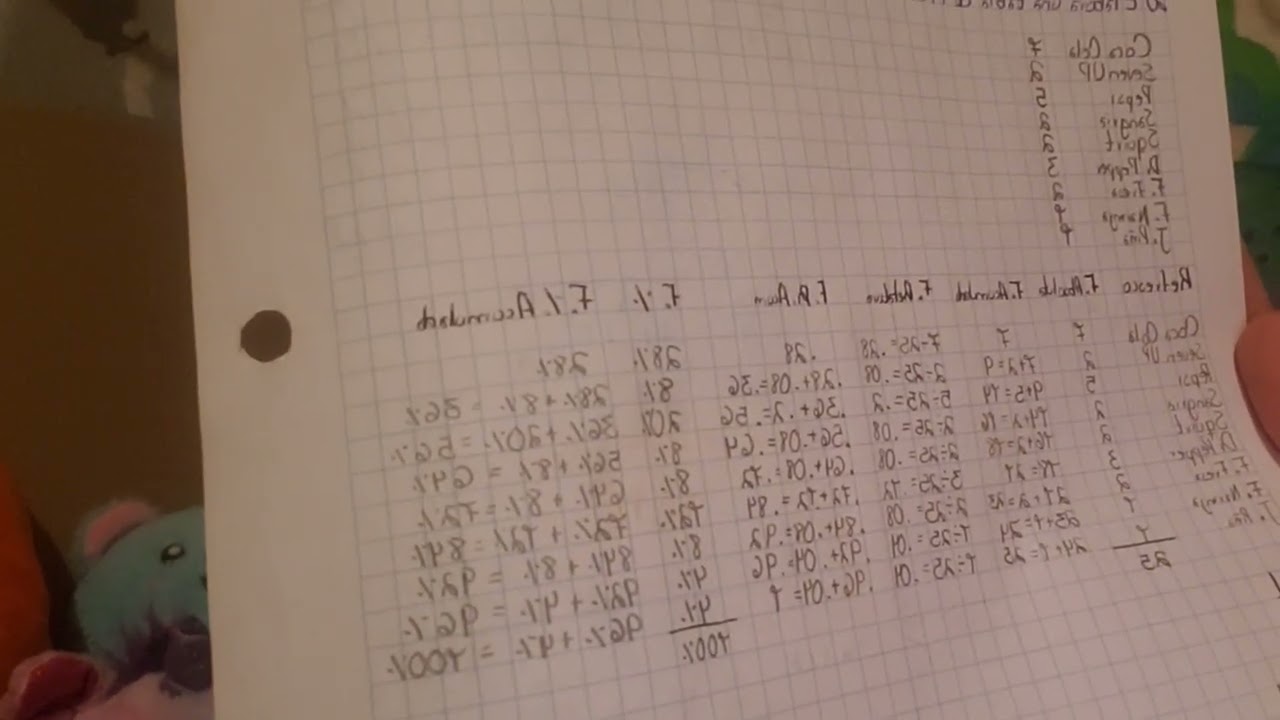 Coca Cola 7
Seven UP 2
Pepsi 5
Sangria 2
Squirt 2
D. Pepper 3
F. Fresa 2
F. Naranja 1
1
Refresco F. Absoluta F. Acumulada F. Relativa F. R. Acum F. % F. % Acumulada
Coca Cola 7 7 7÷25=.28 .28 28% 28%
Seven UP 2 7+2=9 2÷25=.08 .28+.08=.36 8% 28%+8% = 36%
Pepsi 5 9+5=14 5÷25=.2 .36+.2=.56 20% 36%+20% = 56%
Sangria 2 14+2=16 2÷25=.08 .56+.08=.64 8% 56%+8% = 64%
Squirt 2 16+2=18 2÷25=.08 .64+.08=.72 8% 64%+8% = 72%
D. Pepper 3 3÷25=.12 .72+.12=.84 12% 72%+12% = 84%
F. Fresa 2 21+2=23 2÷25=.08 .84+.08=.92 8% 84%+8% = 92%
F. Naranja 1 23+1=24 1÷25=.04 .92+.04=.96 4% 92%+4% = 96%
1 24+1=25 1÷25=.04 .96+.04=1 4% 96%+4% = 100%
25 100%